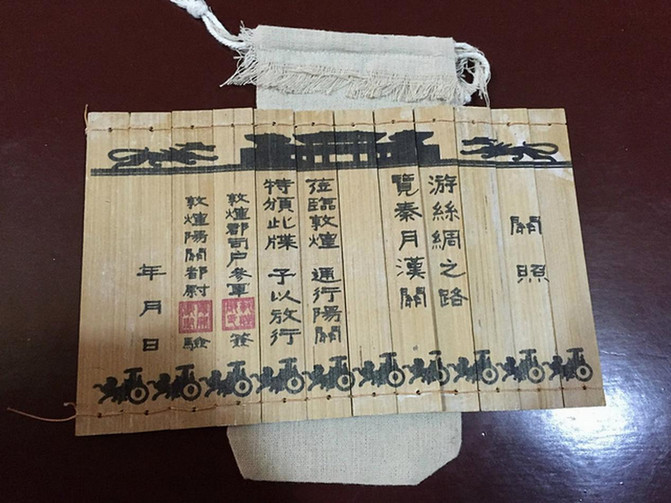 關照
游絲綢之路
覽秦月漢關
蒞臨敦煌 通行陽關
特頒此牒 予以放行
敦煌郡司户參軍 簽
敦煌陽關都尉 驗
年月日